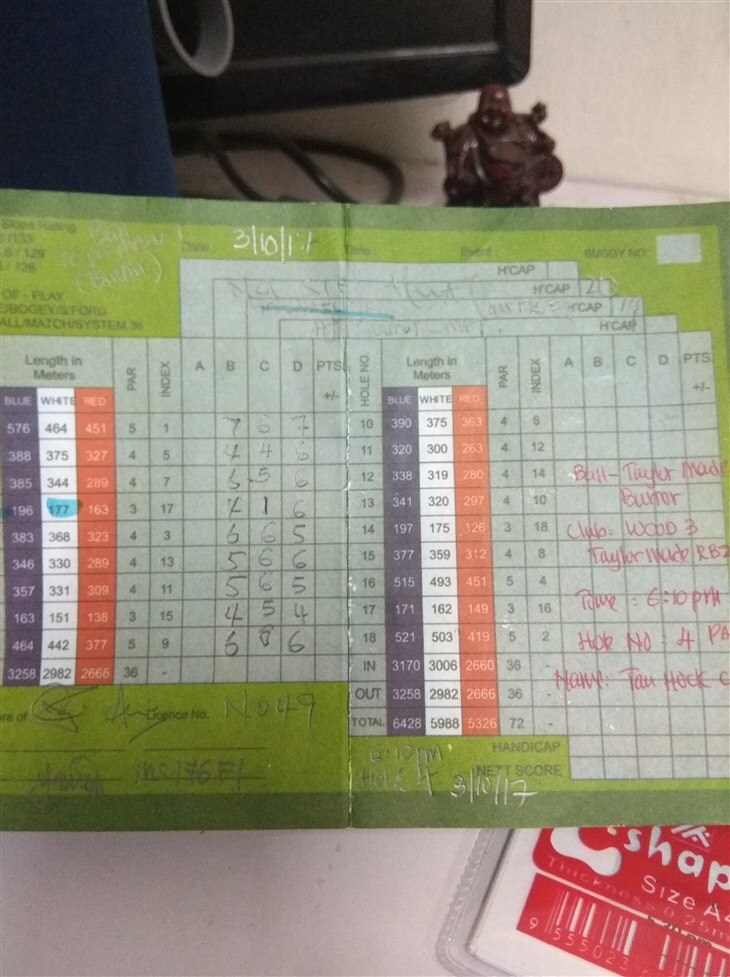 Slope Rating
Date 3/10/17 Time Event BUGGY NO
6 / 129
/ 126
(Burnor)
H'CAP
OF - PLAY
H'CAP
E/BOGEY/S'FORD
H'CAP
ALL/MATCH/SYSTEM 36
H'CAP
Length in Meters PAR INDEX A B C D PTS +/- HOLE NO Length in Meters PAR INDEX A B C D PTS +/-
BLUE WHITE RED BLUE WHITE RED
576 464 451 5 1 7 6 7 10 390 375 363 4 6
388 375 327 4 5 4 4 6 11 320 300 263 4 12
385 344 289 4 7 6 5 6 12 338 319 280 4 14 Ball - Taylor Made
196 177 163 3 17 4 1 6 13 341 320 297 4 10 Burnor
383 368 323 4 3 6 6 5 14 197 175 126 3 18 Club: Wood 3
346 330 289 4 13 5 6 6 15 377 359 312 4 8 Taylor Made RBZ
357 331 309 4 11 5 6 5 16 515 493 451 5 4
163 151 138 3 15 4 5 4 17 171 162 149 3 16 Time : 6:10 pm
464 442 377 5 9 6 8 6 18 521 503 419 5 2 Hole No : 4 PA
3258 2982 2666 36 - IN 3170 3006 2660 36 - Name: Tan Hock C
OUT 3258 2982 2666 36 -
Licence No. N049 TOTAL 6428 5988 5326 72 -
6:10pm HANDICAP
Hole 4 3/10/17 NETT SCORE
shap
Thickness 0.25m
Size A4
9 555023